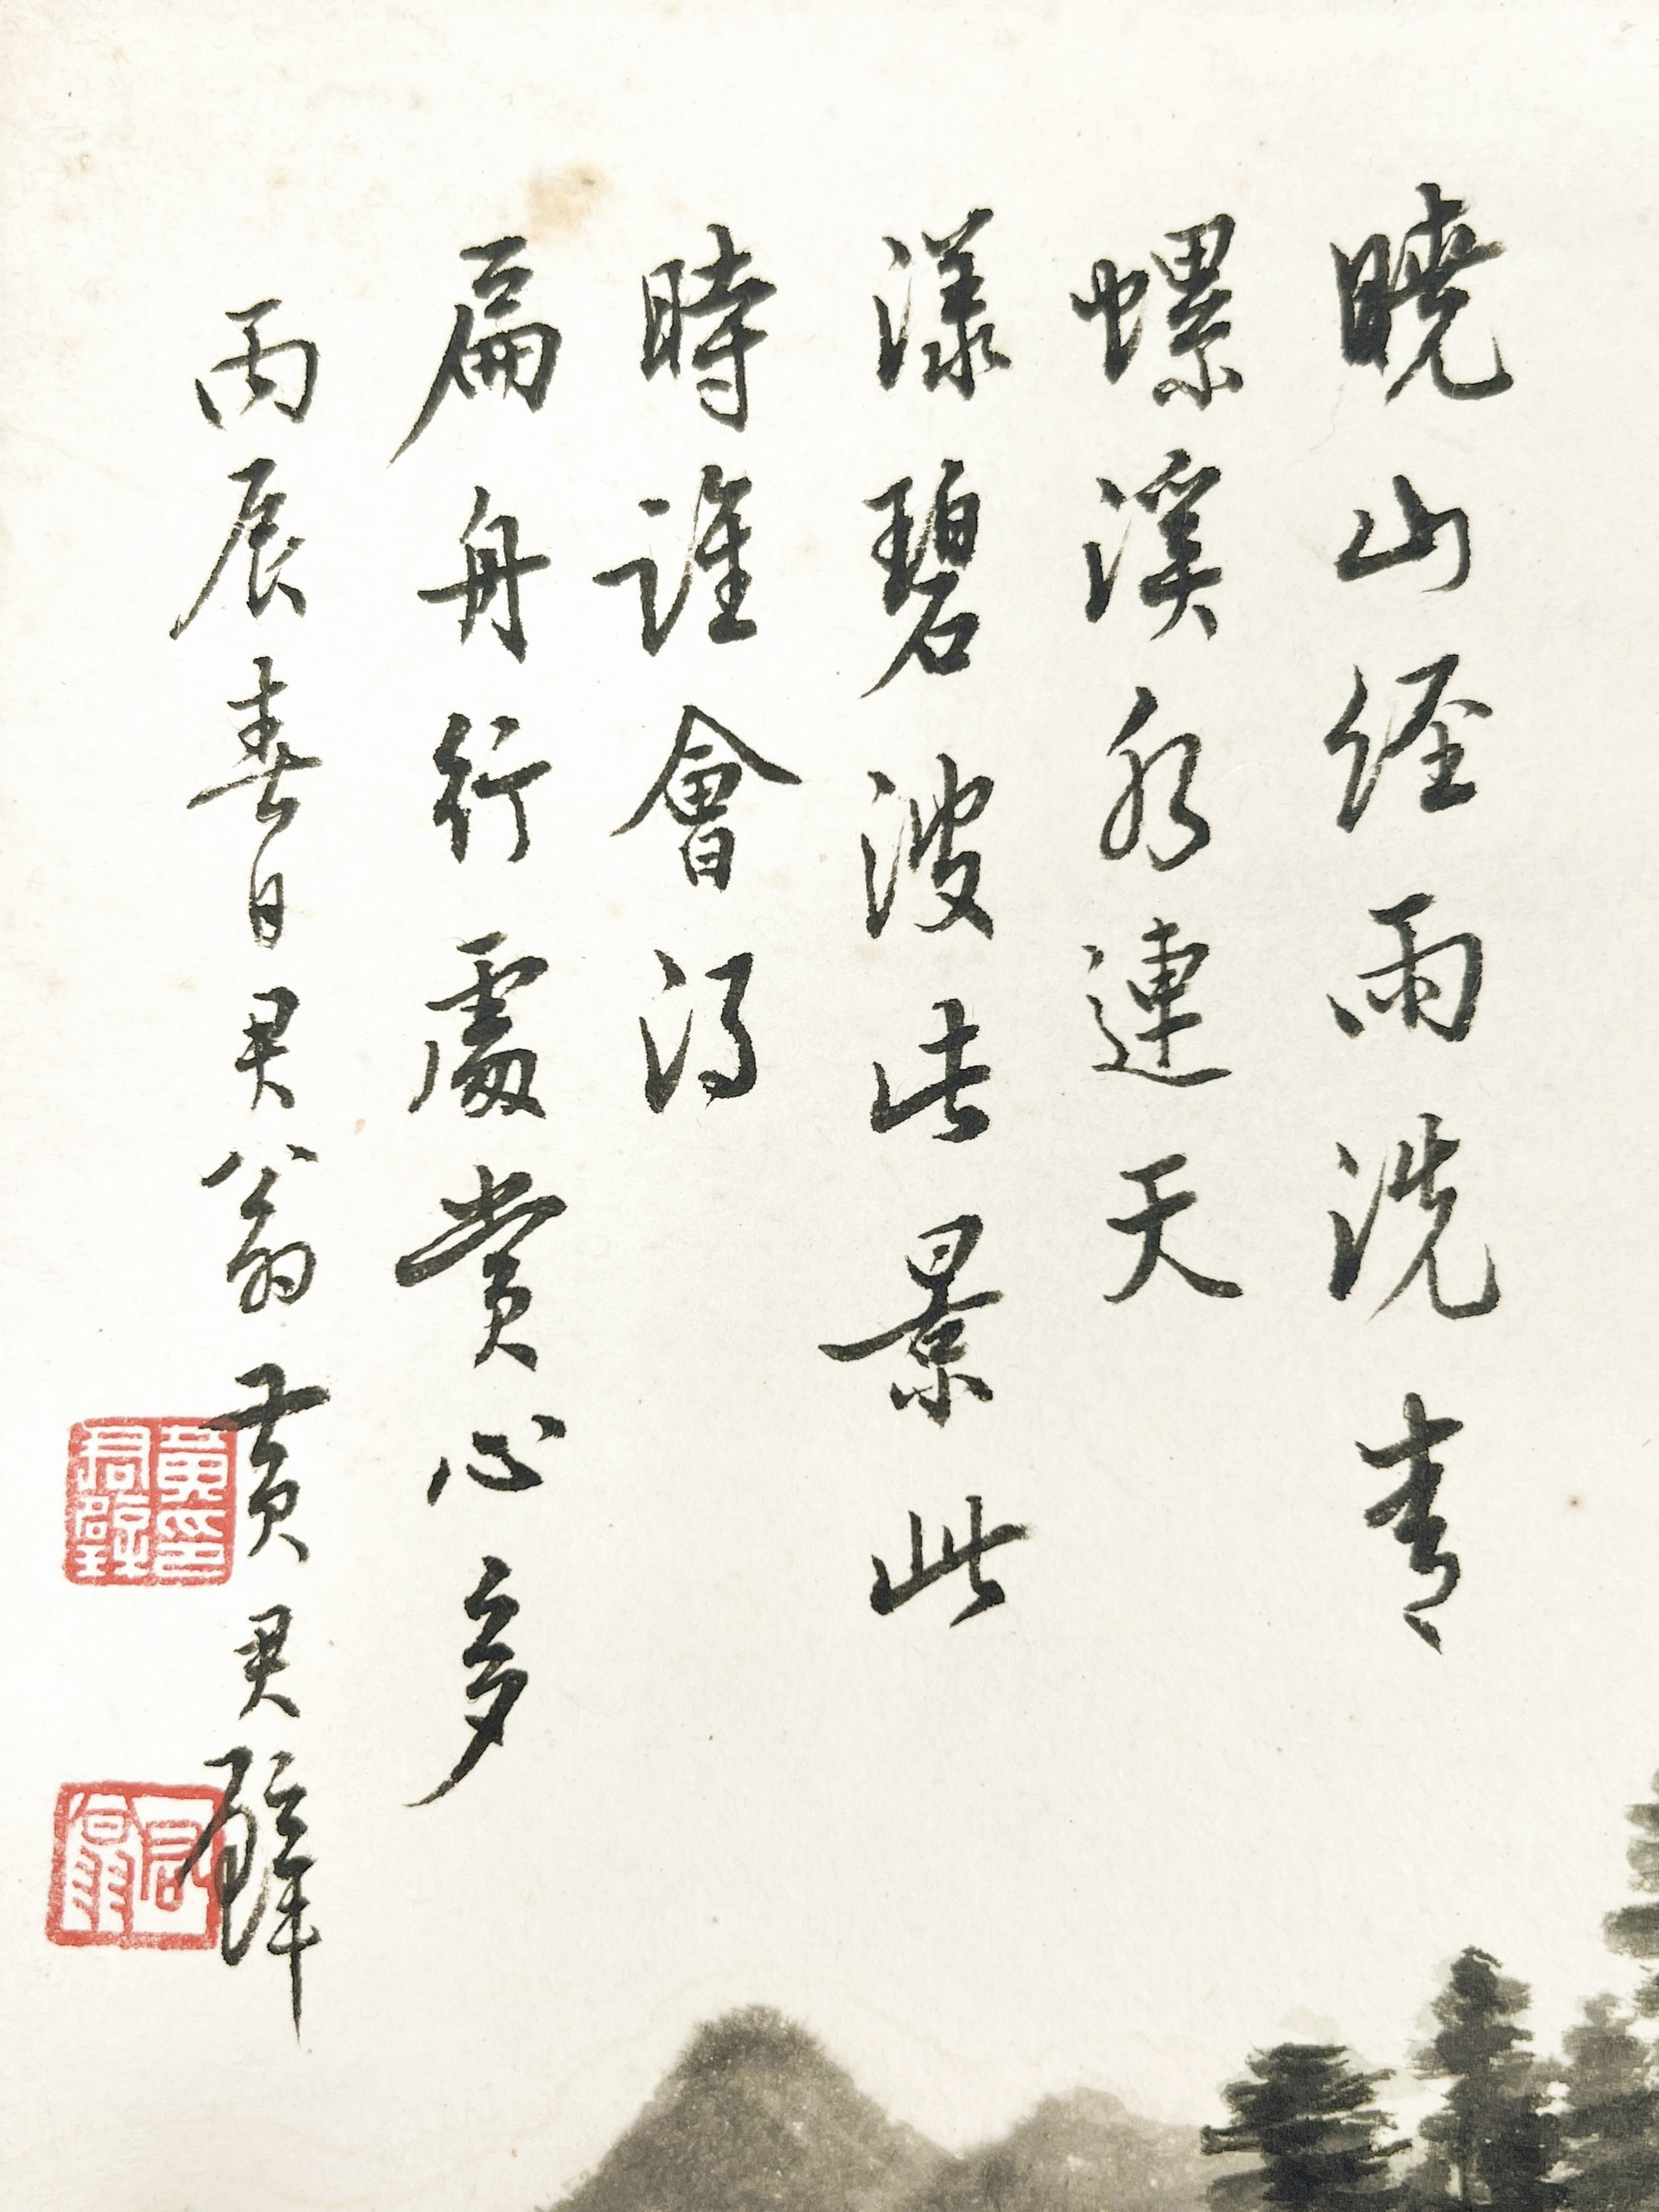 曉山經雨洗青
螺溪水連天
漾碧波此景此
時誰會得
扁舟行處賞心多
丙辰春日君翁黃君璧
黃君璧印
君翁